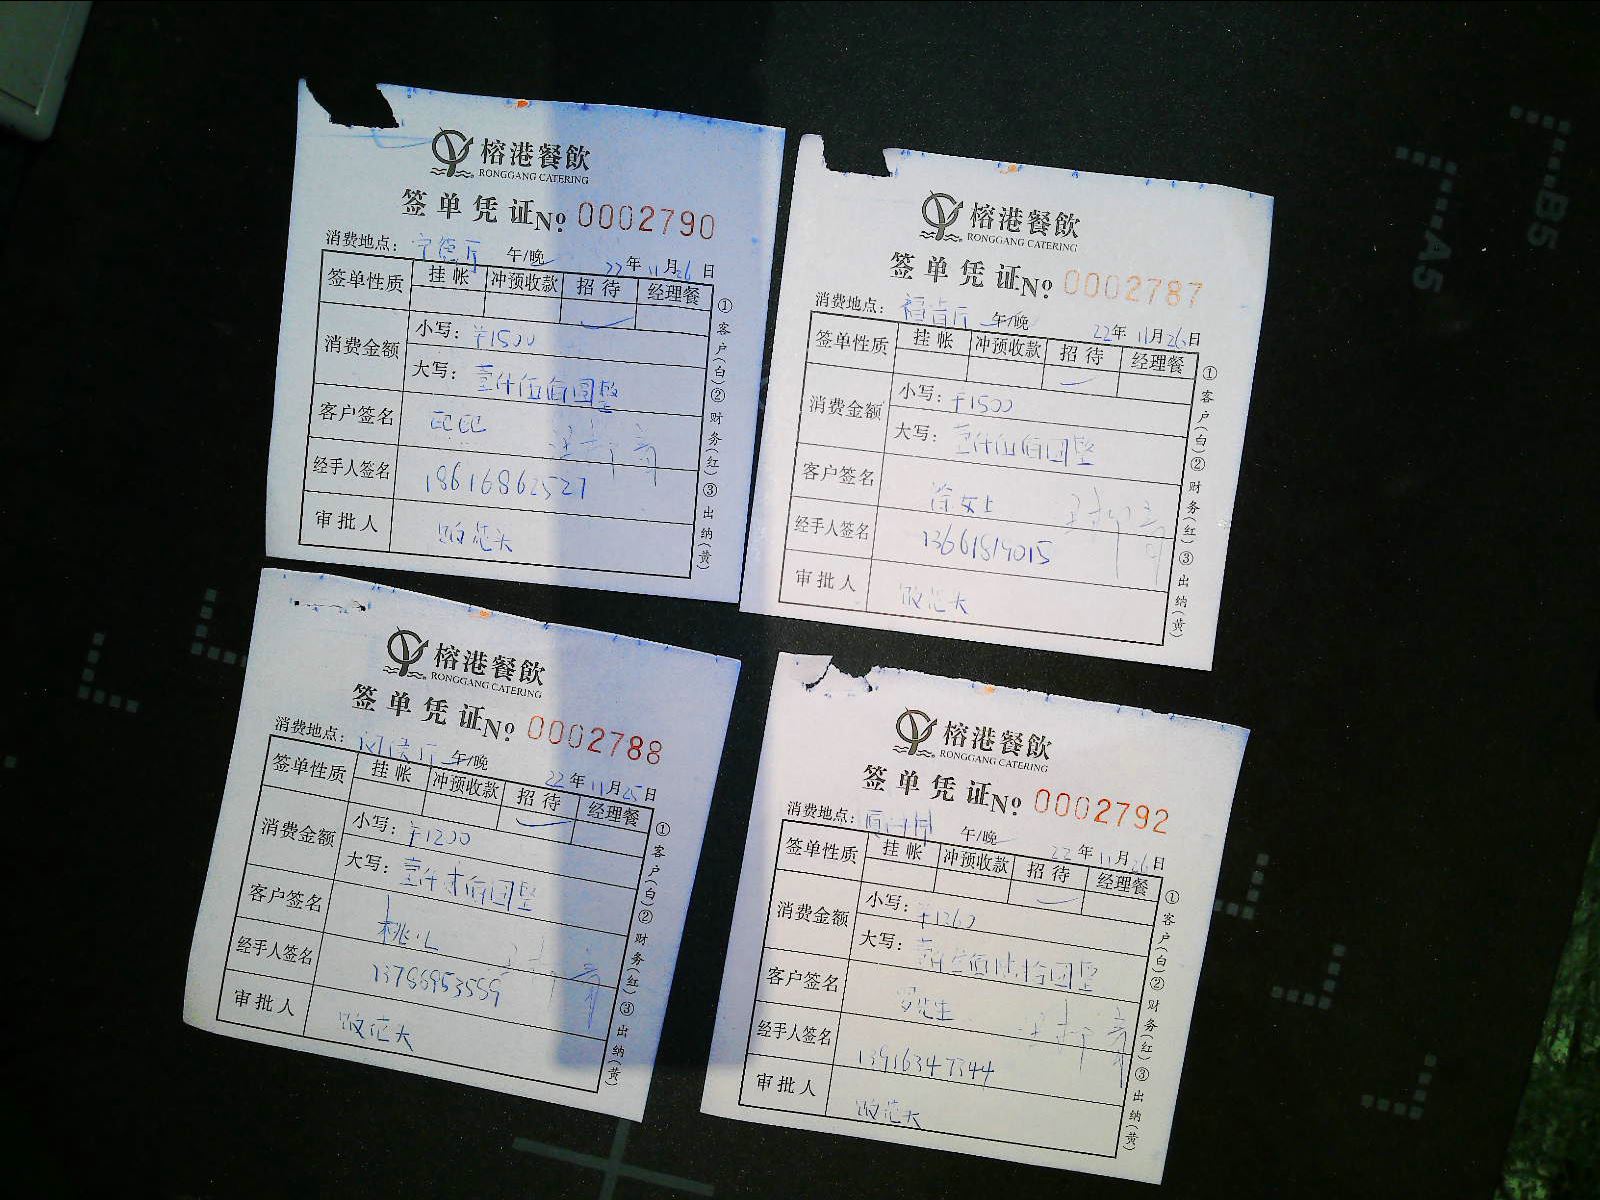 榕港餐飲
RONGGANG CATERING
签单凭证№ 0002790
消费地点：宁德厅 午/晚 22年11月26日
签单性质 挂帐 冲预收款 招待 经理餐
消费金额 小写：¥1500
大写：壹仟伍佰圆整
客户签名
经手人签名 18616862527
审批人
①客户(白)②财务(红)③出纳(黄)
榕港餐飲
RONGGANG CATERING
签单凭证№ 0002787
消费地点： 午/晚 22年11月26日
签单性质 挂帐 冲预收款 招待 经理餐
消费金额 小写：¥1500
大写：壹仟伍佰圆整
客户签名 徐女士
经手人签名 13661814015
审批人
①客户(白)②财务(红)③出纳(黄)
榕港餐飲
RONGGANG CATERING
签单凭证№ 0002788
消费地点： 午/晚 22年11月25日
签单性质 挂帐 冲预收款 招待 经理餐
消费金额 小写：¥1200
大写：壹仟贰佰圆整
客户签名
经手人签名 13786953559
审批人
①客户(白)②财务(红)③出纳(黄)
榕港餐飲
RONGGANG CATERING
签单凭证№ 0002792
消费地点： 午/晚 22年11月26日
签单性质 挂帐 冲预收款 招待 经理餐
消费金额 小写：¥1260
大写：
客户签名 罗先生
经手人签名 13916347344
审批人
①客户(白)②财务(红)③出纳(黄)
B5
A5